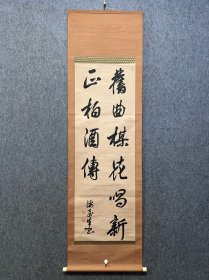 舊曲楳花唱新
正柏酒傳